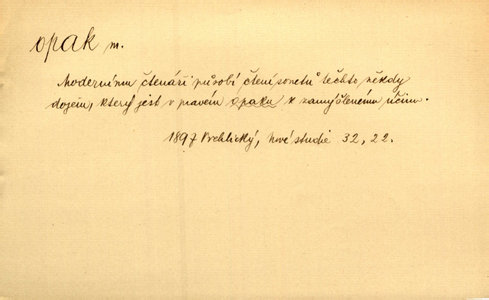 opak m.
Modernímu čtenáři působí čtení sonetů těchto někdy
dojem, který jest v pravém opaku k zamýšlenému účinu.
1897 Vrchlický, Nové studie 32, 22.